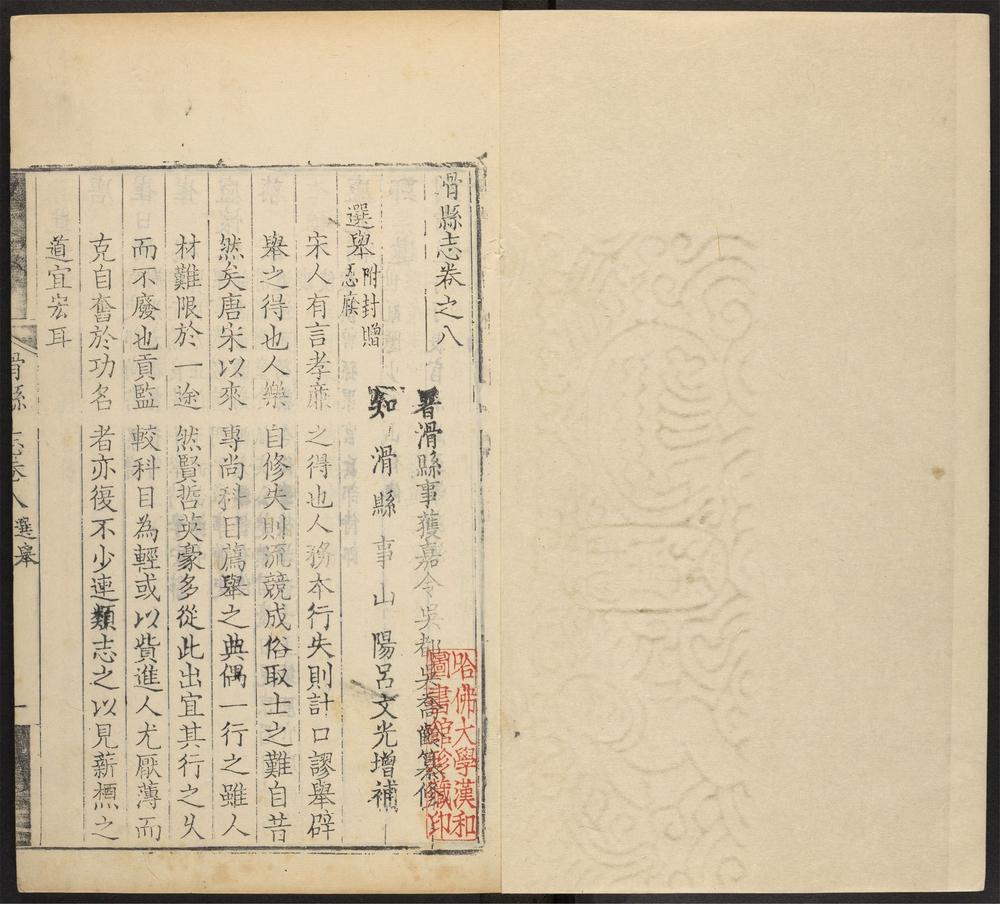 滑縣志卷之八
署滑縣事獲嘉令吳都吳喬齡纂修
知滑縣事山陽呂文光增補
選舉附封贈恩廕
宋人有言孝廉之得也人務本行失則計口謬舉辟
舉之得也人樂自修失則流競成俗取士之難自昔
然矣唐宋以來專尚科目薦舉之典偶一行之雖人
材難限於一途然賢哲英豪多從此出宜其行之久
而不廢也貢監較科目為輕或以貲進人尤厭薄而
克自奮於功名者亦復不少連類志之以見薪槱之
道宜宏耳
滑縣志卷八 選舉 一
哈佛大學漢和
圖書館珍藏印